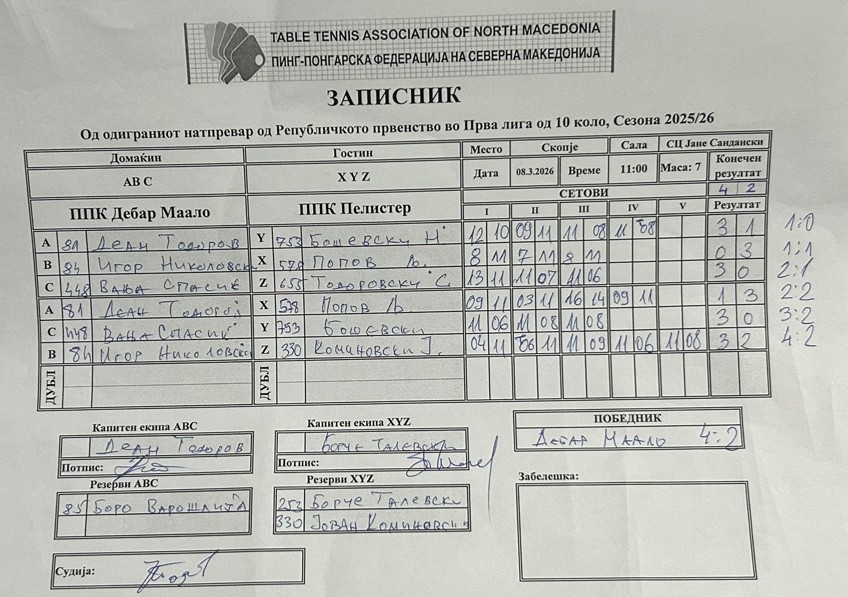 TABLE TENNIS ASSOCIATION OF NORTH MACEDONIA
ПИНГ-ПОНГАРСКА ФЕДЕРАЦИЈА НА СЕВЕРНА МАКЕДОНИЈА
ЗАПИСНИК
Од одиграниот натпревар од Републичкото првенство во Прва лига од 10 коло, Сезона 2025/26
Домаќин Гостин Место Скопје Сала СЦ Јане Сандански
A B C X Y Z Дата 08.3.2026 Време 11:00 Маса: 7 Конечен резултат
ППК Дебар Маало ППК Пелистер СЕТОВИ 4 2
I II III IV V Резултат
A 81 Деан Тодоров Y 753 Бошевски Н 12 10 09 11 11 08 11 08 3 1 1:0
B 84 Игор Николовски X 578 Попов Љ. 8 11 7 11 8 11 0 3 1:1
C 448 Вања Спасиќ Z 655 Тодоровски С 13 11 11 07 11 06 3 0 2:1
A 81 Деан Тодоров X 578 Попов Љ. 09 11 03 11 16 14 09 11 1 3 2:2
C 448 Вања Спасиќ Y 753 Бошевски 11 06 11 08 11 08 3 0 3:2
B 84 Игор Николовски Z 330 Коминовски Ј. 04 11 06 11 11 09 11 06 11 08 3 2 4:2
ДУБЛ ДУБЛ
Капитен екипа ABC Капитен екипа XYZ ПОБЕДНИК
Деан Тодоров Борче Талевски Дебар Маало 4:2
Потпис: Потпис:
Резерви ABC Резерви XYZ Забелешка:
85 Боро Варошлија 253 Борче Талевски
330 Јован Коминовски
Судија: